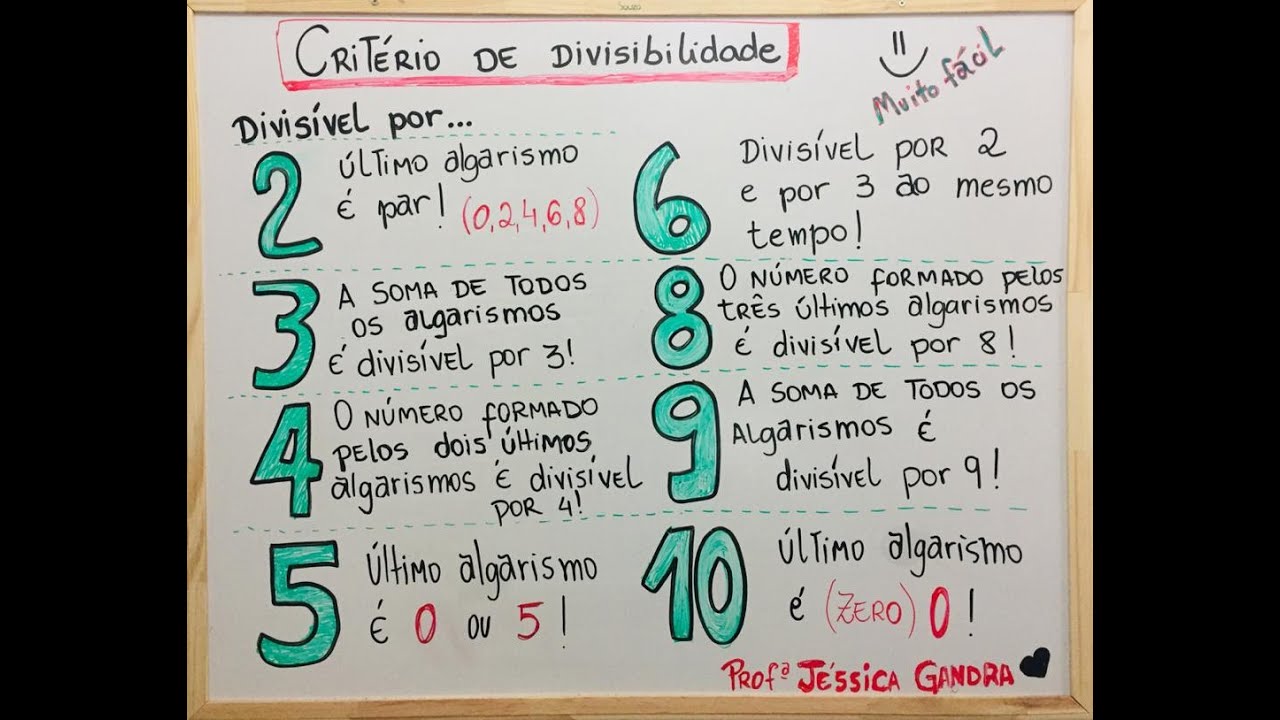 Souza
CRITÉRIO DE DIVISIBILIDADE
Muito fácil
Divisível por...
2
ÚLTIMO algarismo
É par! (0,2,4,6,8)
3
A SOMA DE TODOS
OS algarismos
É divisível por 3!
4
O NÚMERO FORMADO
pelos dois últimos
algarismos É divisível
POR 4!
5
Último algarismo
É 0 ou 5!
6
DIVISÍVEL POR 2
e por 3 ao mesmo
tempo!
8
O NÚMERO FORMADO PELOS
TRÊS Últimos algarismos
É divisível por 8!
9
A SOMA DE TODOS OS
Algarismos É
divisível por 9!
10
ÚLTIMO algarismo
é (ZERO) 0!
Profª JÉSSICA GANDRA